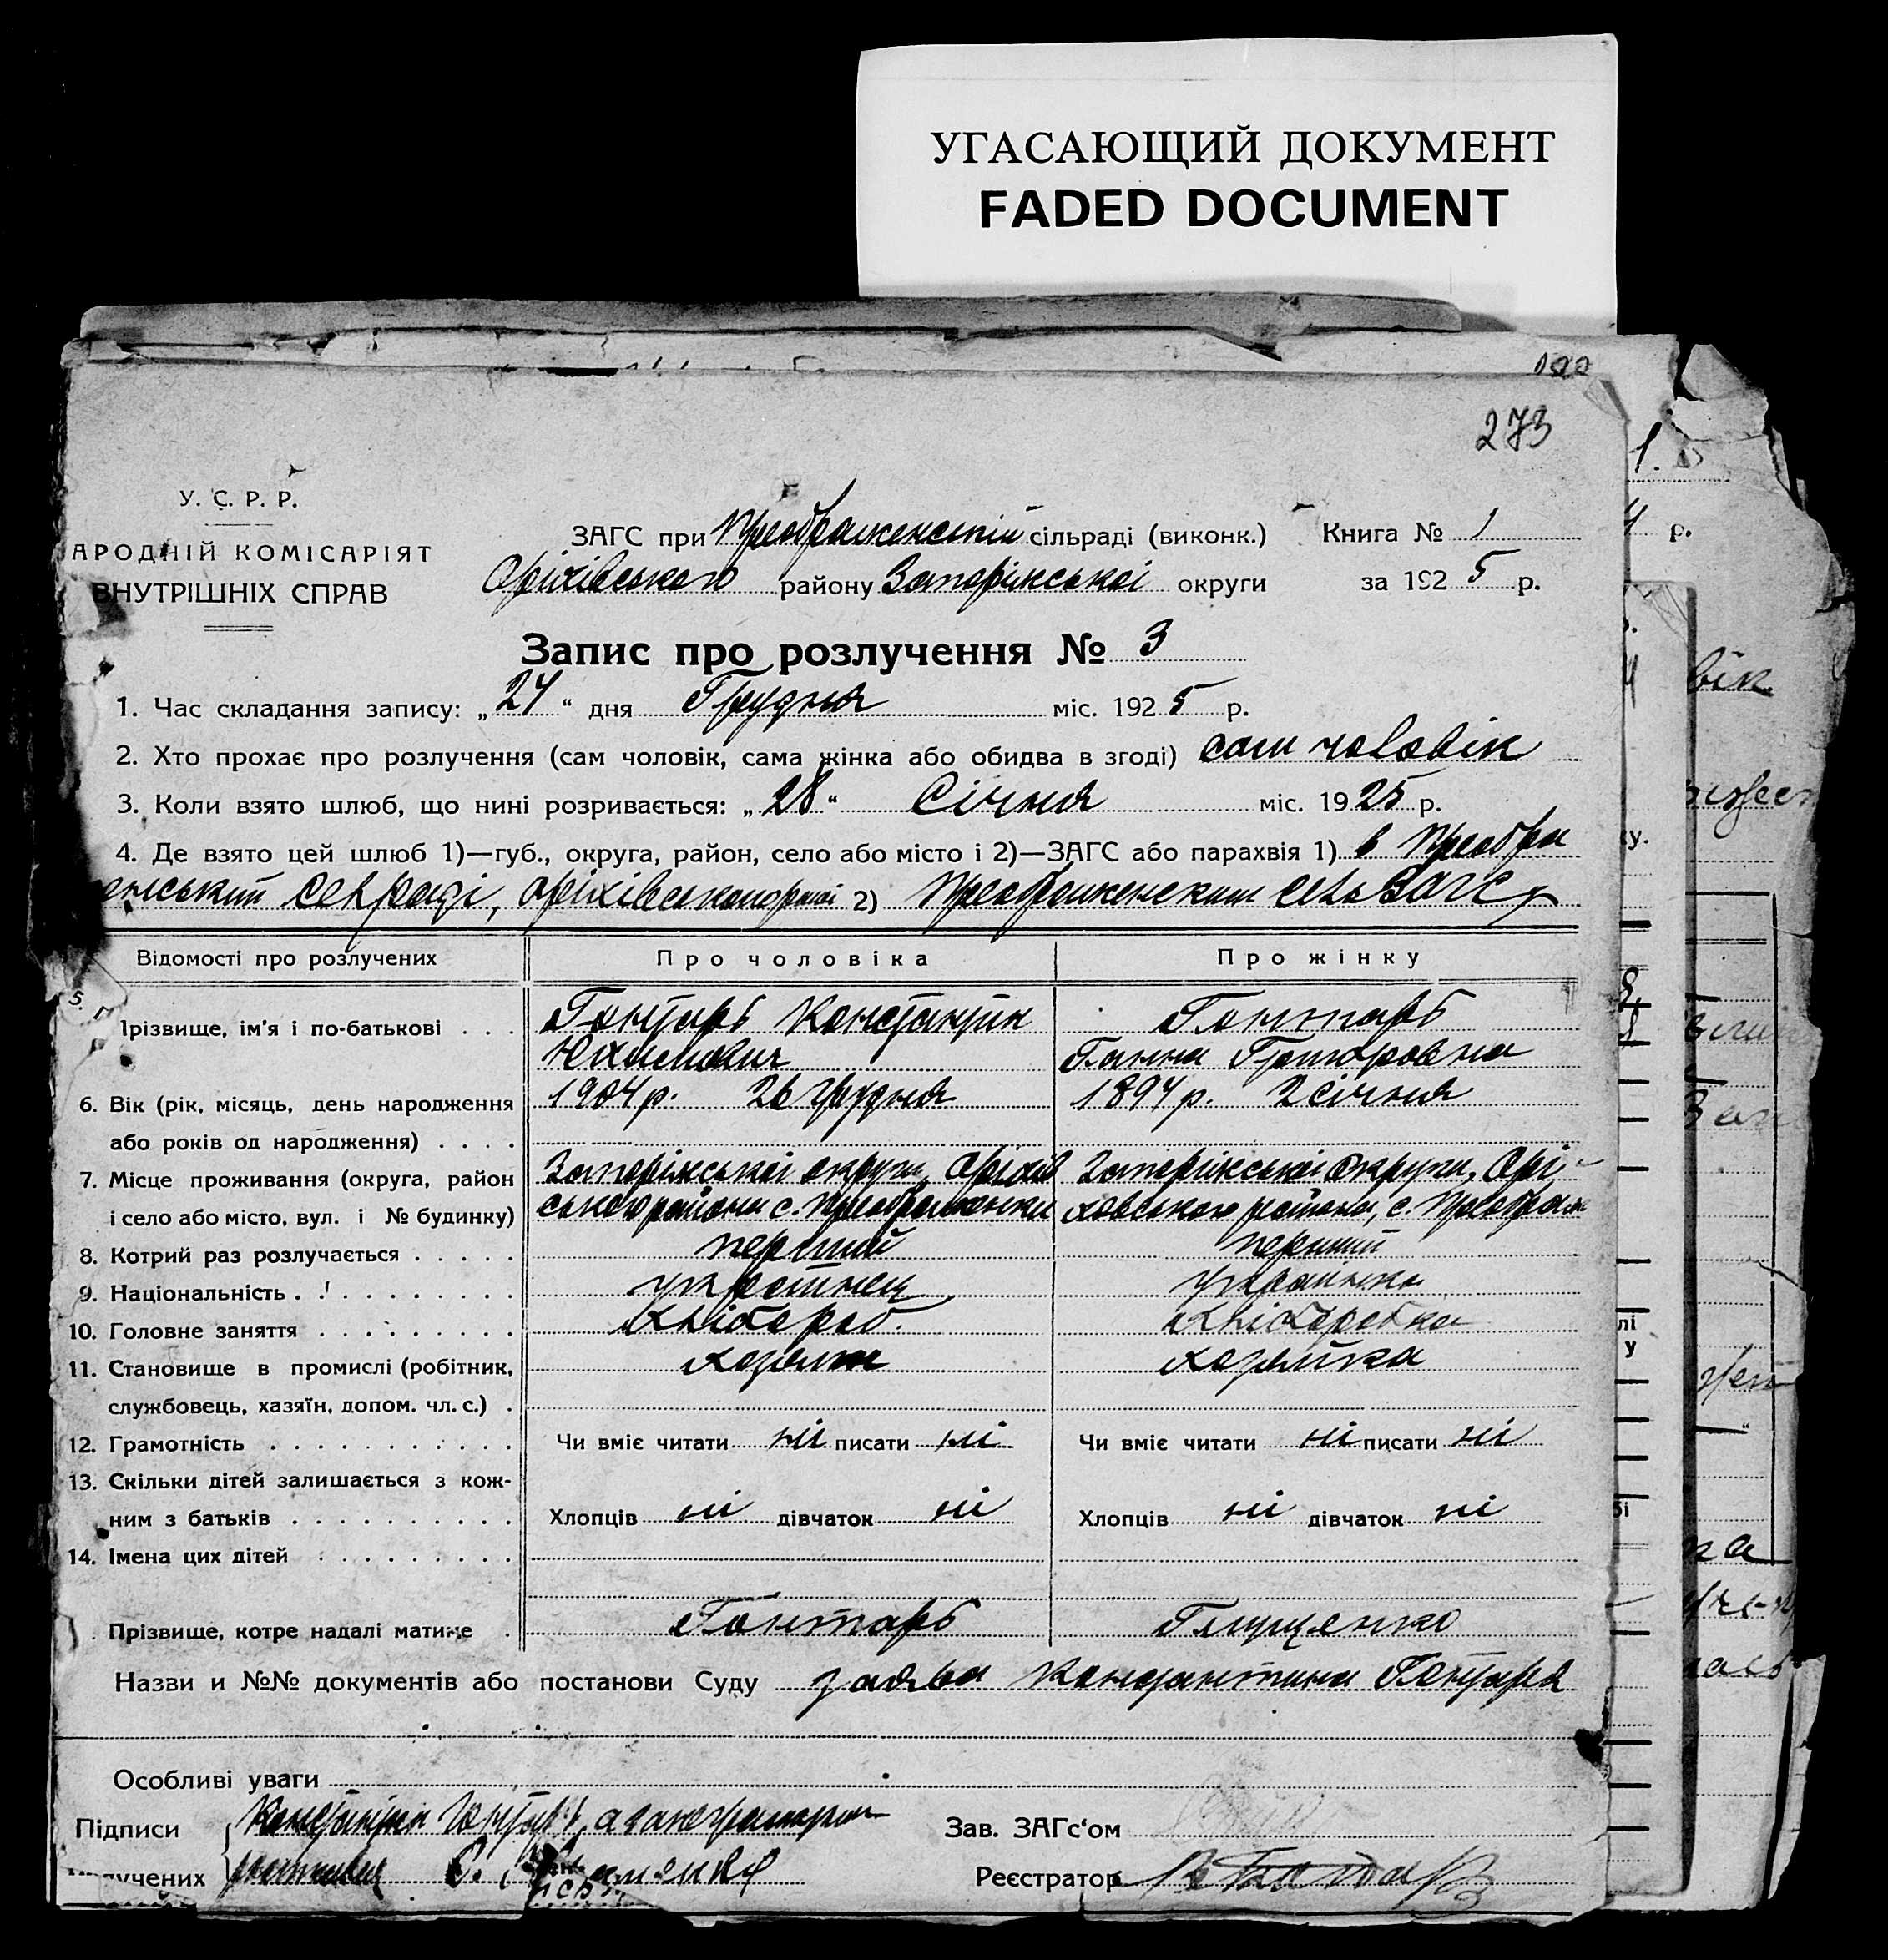 УГАСАЮЩИЙ ДОКУМЕНТ
FADED DOCUMENT
273
У. С. Р. Р.
АРОДНІЙ КОМІСАРІЯТ
ВНУТРІШНІХ СПРАВ
ЗАГС при Преображенській сільраді (виконк.) Книга № 1
Оріхівського району Запоріжської округи за 1925 р.
Запис про розлучення № 3
1. Час складання запису: „24“ дня Грудня міс. 1925 р.
2. Хто прохає про розлучення (сам чоловік, сама жінка або обидва в згоді) сам чоловік
3. Коли взято шлюб, що нині розривається: „28“ Січня міс. 1925 р.
4. Де взято цей шлюб 1)—губ., округа, район, село або місто і 2)—ЗАГС або парахвія 1) в Преобра
2) Преображенским сельЗагс
Відомості про розлучених Про чоловіка Про жінку
5. Прізвище, ім'я і по-батькові . . . Гонтарь Константин Гонтарь
Юхимович Ганна
6. Вік (рік, місяць, день народження 1904 р. 26 Грудня 1894 р. 2 січня
або років од народження) . . . .
7. Місце проживання (округа, район Запоріжської округи, Оріхів Запоріжської округи, Орі-
і село або місто, вул. і № будинку) ського району с. Преображенки ховського району, с. Преображ
8. Котрий раз розлучається . . . . . перший перший
9. Національність . . . . . . . . . українец українка
10. Головне заняття . . . . . . . . . хлібороб. хліборобка
11. Становище в промислі (робітник, хозяин хозяйка
службовець, хазяїн, допом. чл. с.) .
12. Грамотність . . . . . . . . . . . Чи вміє читати ні писати ні Чи вміє читати ні писати ні
13. Скільки дітей залишається з кож-
ним з батьків . . . . . . . . . . Хлопців ні дівчаток ні Хлопців ні дівчаток ні
14. Імена цих дітей . . . . . . . . .
Прізвище, котре надалі матиме . Гонтарь Глущенко
Назви и №№ документів або постанови Суду заява Константина Гонтаря
Особливі уваги
Підписи Константин Гонтарь, а
лучених
Зав. ЗАГс‘ом
Реєстратор